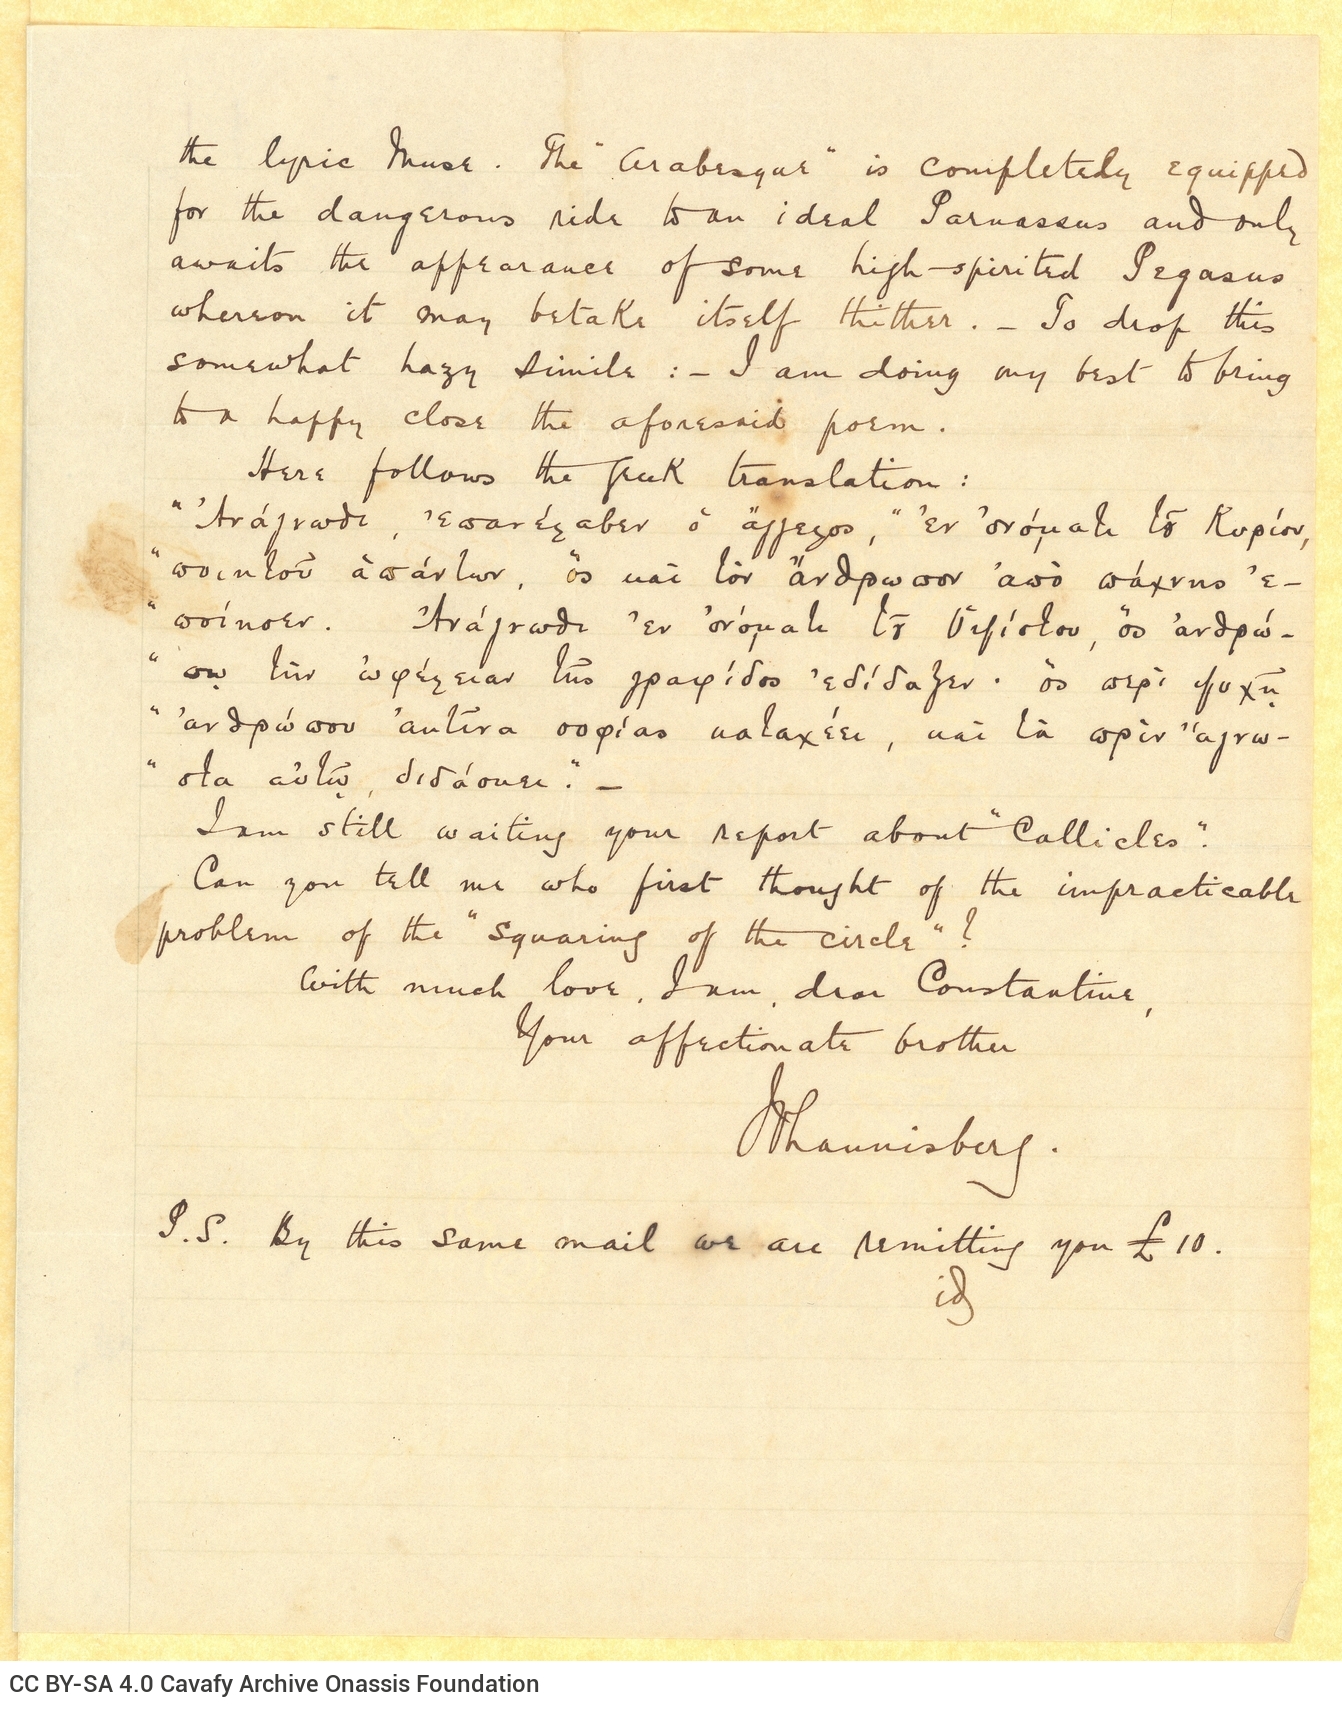 the lyric Muse. The "Arabesque" is completely equipped
for the dangerous ride to an ideal Parnassus and only
awaits the appearance of some high-spirited Pegasus
whereon it may betake itself thither. – To drop this
somewhat hazy simile :– I am doing my best to bring
to a happy close the aforesaid poem.
Here follows the Greek translation :
"Ἀνάγνωθι, ἐπανέλαβεν ὁ ἄγγελος, "ἐν ὀνόματι τοῦ Κυρίου,
"ποιητοῦ ἁπάντων, ὃς καὶ τὸν ἄνθρωπον ἀπὸ πάχνης ἐ-
"ποίησεν. Ἀνάγνωθι ἐν ὀνόματι τοῦ Ὑψίστου, ὃς ἀνθρώ-
"πῳ τὴν ὠφέλειαν τῆς γραφίδος ἐδίδαξεν· ὃς περὶ ψυχῇ
"ἀνθρώπου ἀκτῖνα σοφίας καταχέει, καὶ τὰ πρὶν ἄγνω-
"στα αὐτῷ, διδάσκει." –
I am still waiting your report about "Callicles".
Can you tell me who first thought of the impracticable
problem of the "squaring of the circle"?
With much love, I am, dear Constantine,
Your affectionate brother
Johannisberg.
P.S. By this same mail we are remitting you £10.
id
CC BY-SA 4.0 Cavafy Archive Onassis Foundation